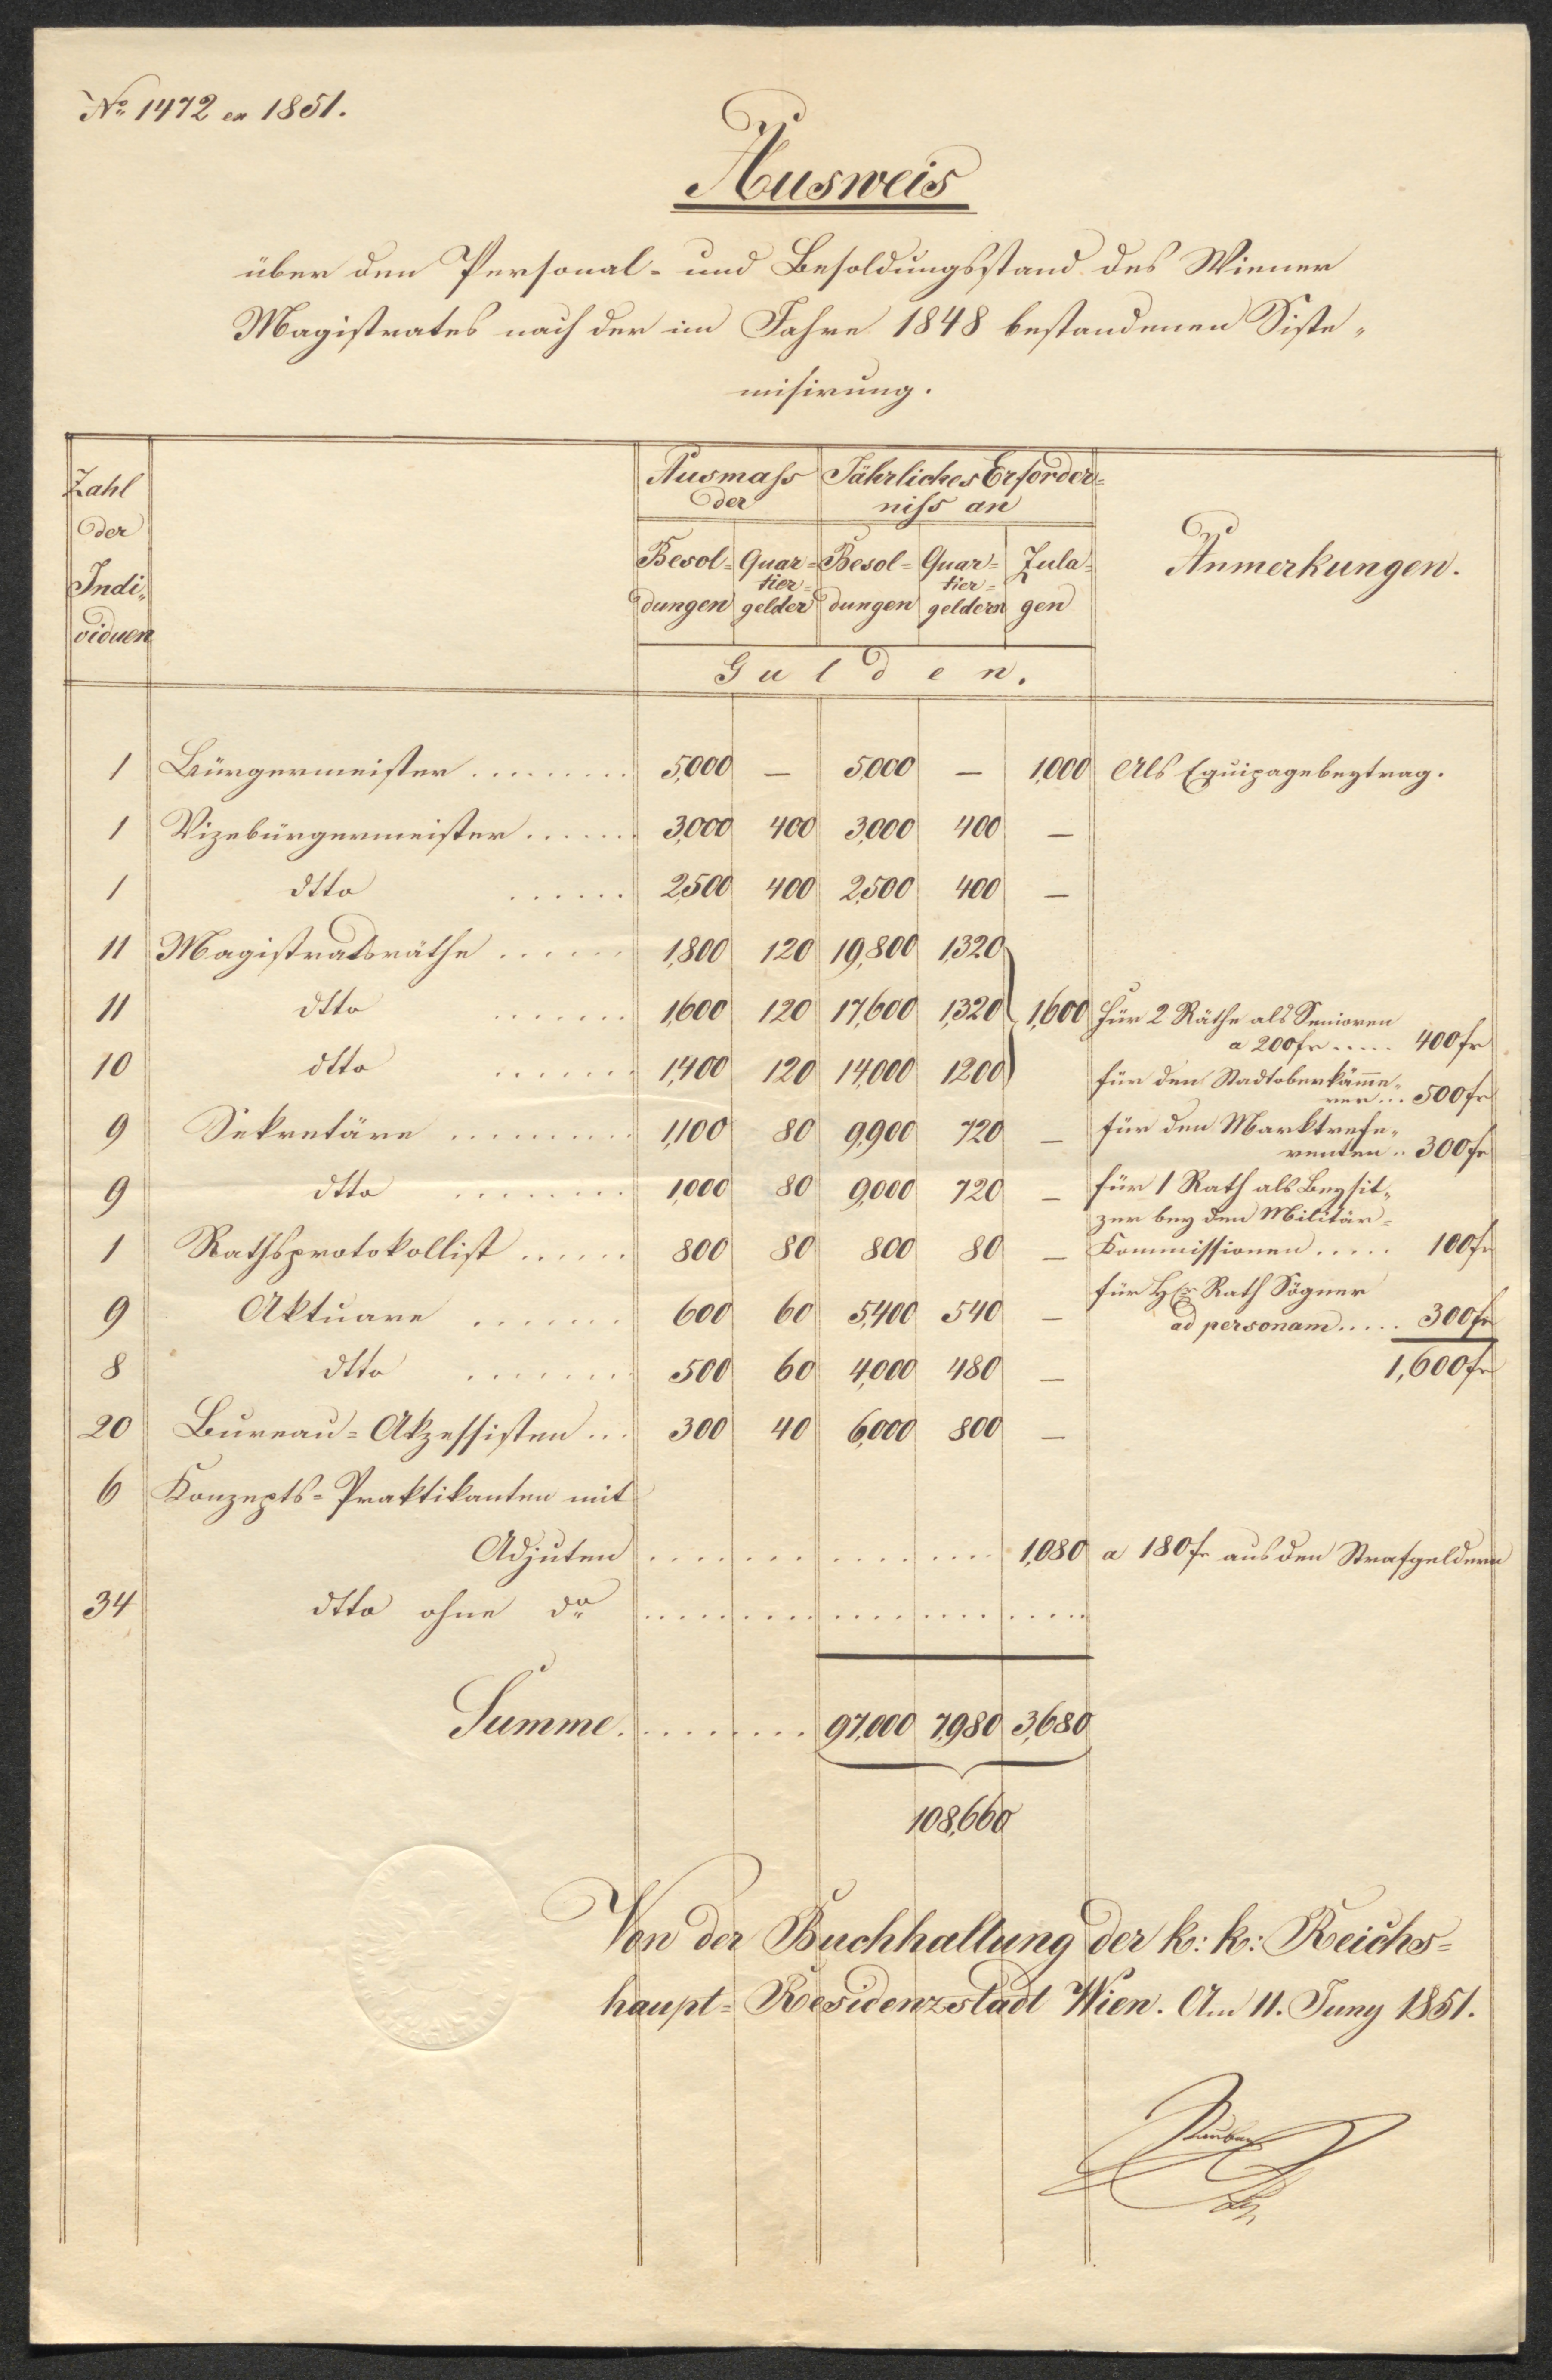 No 1472 ex 1851.
Ausweis
über den Personal- und Besoldungsstand des Wiener
Magistrates nach der im Jahre 1848 bestandenen Siste-
misirung.
Zahl
der
Indi-
viduen
Ausmaß
der
Jährliches Erforder-
niß an
Besol-
dungen
Quar-
tier-
gelder
Besol-
dungen
Quar-
tier-
geldern
Zula-
gen
Gulden.
Anmerkungen.
1 Bürgermeister ......... 5,000 — 5,000 — 1,000 Als Equipagebeytrag.
1 Vizebürgermeister ...... 3,000 400 3,000 400 —
1 dtto ...... 2,500 400 2,500 400 —
11 Magistratsräthe ...... 1,800 120 19,800 1,320
11 dtto ....... 1,600 120 17,600 1,320 1,600 Für 2 Räthe als Senioren
a 200 fr ..... 400 fr
10 dtto ....... 1,400 120 14,000 1200 für den Stadtoberkämme-
rer ... 500 fr
9 Sekretäre ......... 1,100 80 9,900 720 — für den Marktrefe-
renten .. 300 fr
9 dtto ........ 1,000 80 9,000 720 — für 1 Rath als Beysit-
zer bey den Militär-
1 Rathsprotokollist ...... 800 80 800 80 — Kommissionen ..... 100 fr
für H Rath Sögner
9 Aktuare ....... 600 60 5,400 540 — ad personam ..... 300 fr
8 dtto ....... 500 60 4,000 480 — 1,600 fr
20 Bureau-Akzessisten ... 300 40 6,000 800 —
6 Konzepts-Praktikanten mit
Adjuten ............... 1,080 a 180 fr aus den Strafgeldern
34 dtto ohne do ....................
Summe .......... 97,000 7,980 3,680
108,660
Von der Buchhaltung der k: k: Reichs-
haupt- Residenzstadt Wien. Am 11. Juny 1851.